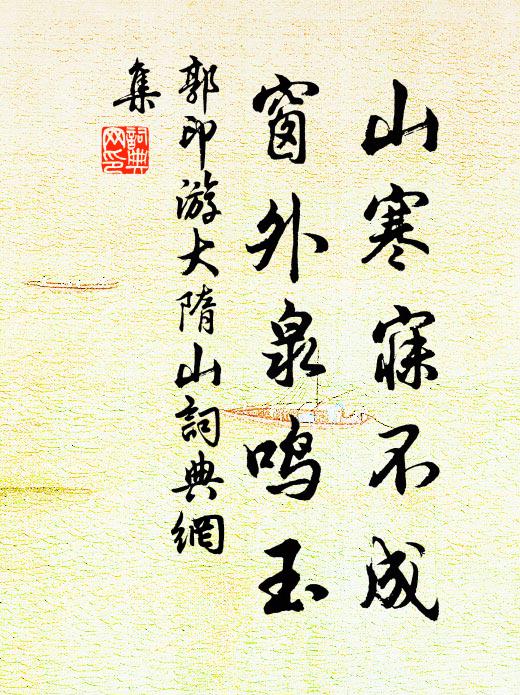 山寒寐不成
窗外泉鸣玉
郭印游大隋山詞典網
集
詞典
网印